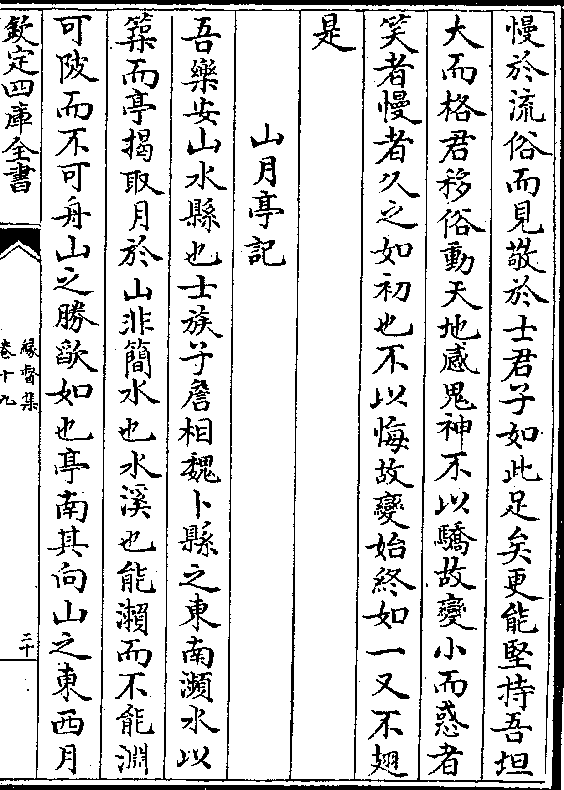 慢於流俗而見敬於士君子如此足矣更能堅持吾坦
大而格君移俗動天地感鬼神不以驕故變小而惑者
笑者慢者久之如初也不以悔故變始終如一又不翅
是
山月亭記
吾樂安山水縣也士族子詹相魏卜縣之東南瀕水以
築而亭揭取月於山非簡水也水溪也能瀨而不能淵
可陂而不可舟山之勝歐如也亭南其向山之東西月
欽定四庫全書
緣督集
卷十九
二十